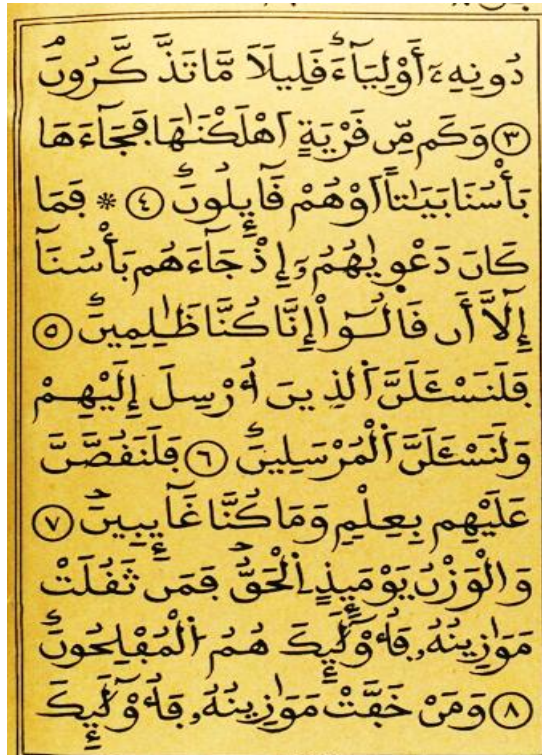 دُونِهِۦٓ أَوْلِيَآءَ قَلِيلاَ مَّا تَذَّكَّرُونَ
٣ وَكَم مِّن قَرْيَةٍ اَهْلَكْنَٰهَا فَجَآءَهَا
بَأْسُنَا بَيَٰتاً اَوْ هُمْ قَآئِلُونَ ٤ * فَمَا
كَانَ دَعْوٜيٰهُمُۥٓ إِذْ جَآءَهُم بَأْسُنَآ
إِلَّآ أَن قَالُوٓاْ إِنَّا كُنَّا ظَٰلِمِينَ ٥
فَلَنَسْـَٔلَنَّ اَلذِينَ أُرْسِلَ إِلَيْهِمْ
وَلَنَسْـَٔلَنَّ اَلْمُرْسَلِينَ ٦ فَلَنَقُصَّنَّ
عَلَيْهِم بِعِلْمٍ وَمَا كُنَّا غَآئِبِينَ ٧
وَالْوَزْنُ يَوْمَئِذٍ اِلْحَقُّ فَمَن ثَقُلَتْ
مَوَٰزِينُهُۥ فَأُوْلَٰٓئِكَ هُمُ اُلْمُفْلِحُونَ
٨ وَمَنْ خَفَّتْ مَوَٰزِينُهُۥ فَأُوْلَٰٓئِكَ